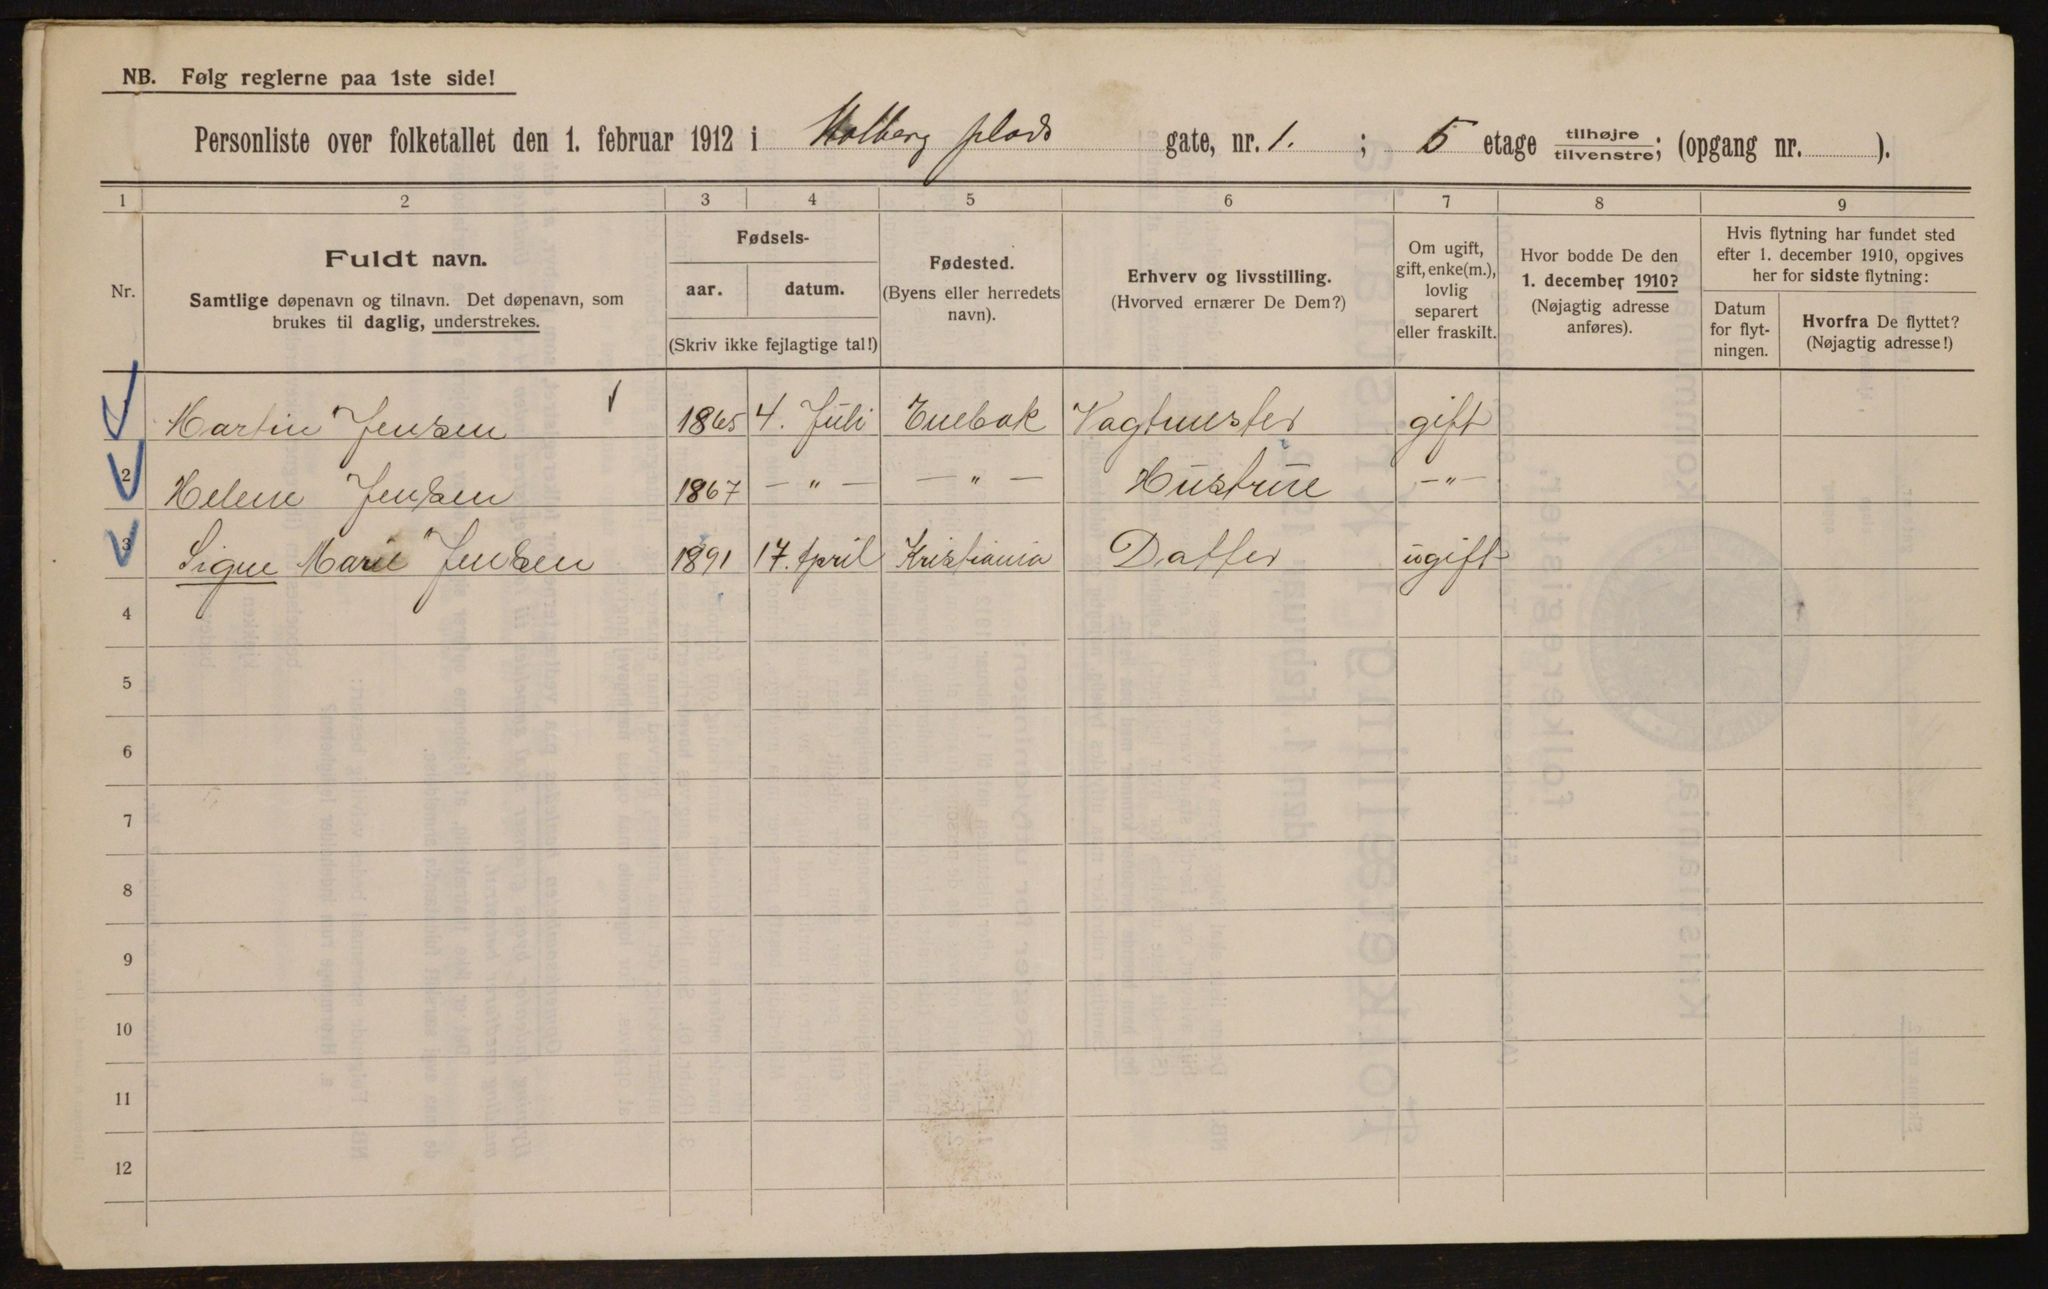 NB. Følg reglerne paa 1ste side!
Personliste over folketallet den 1. februar 1912 i Holberg plads gate, nr. 1. ; 5 etage tilhøjre/tilvenstre; (opgang nr. ).
1 2 3 4 5 6 7 8 9
Nr.
Fuldt navn.
Samtlige døpenavn og tilnavn. Det døpenavn, som
brukes til daglig, understrekes.
Fødsels-
aar. datum.
(Skriv ikke fejlagtige tal!)
Fødested.
(Byens eller herredets
navn).
Erhverv og livsstilling.
(Hvorved ernærer De Dem?)
Om ugift,
gift, enke(m.),
lovlig
separert
eller fraskilt.
Hvor bodde De den
1. december 1910?
(Nøjagtig adresse
anføres).
Hvis flytning har fundet sted
efter 1. december 1910, opgives
her for sidste flytning:
Datum
for flyt-
ningen.
Hvorfra De flyttet?
(Nøjagtig adresse!)
Martin Jensen 1865 4. Juli Enebak Vagtmester gift
2 Helene Jensen 1867 — " — — " — Hustrue — " —
3 Signe Marie Jensen 1891 17. April Kristiania Datter ugift
4
5
6
7
8
9
10
11
12